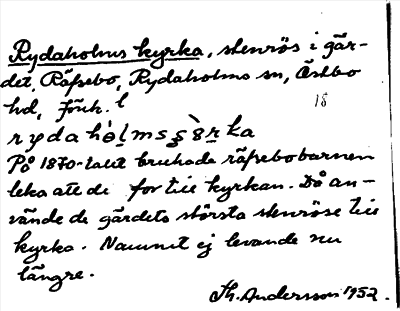 Rydaholms kyrka, stenrös i går-
det, Räfsebo, Rydaholms sn, Östbo
hd, Jönk. l
18
rydahòl̠ms ʂ̀ör̠ka
På 1870-talet brukade räfsebobarnen
leka att de for till kyrkan. Då an-
vände de gärdets största stenröse till
kyrka. Namnet ej levande nu
längre.
Th. Andersson 1952.